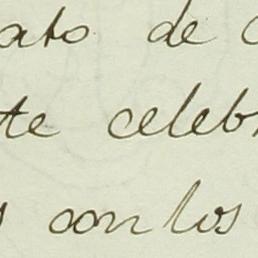 ato de c
te celeb
s con los